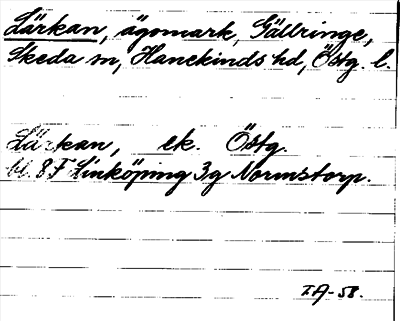 Lärkan, ägomark, Gällringe,
Skeda sn, Hanekinds hd, Östg. l.
Lärkan, ek. Östg.
bl. 8F Linköping 3g Normstorp.
IA-58.